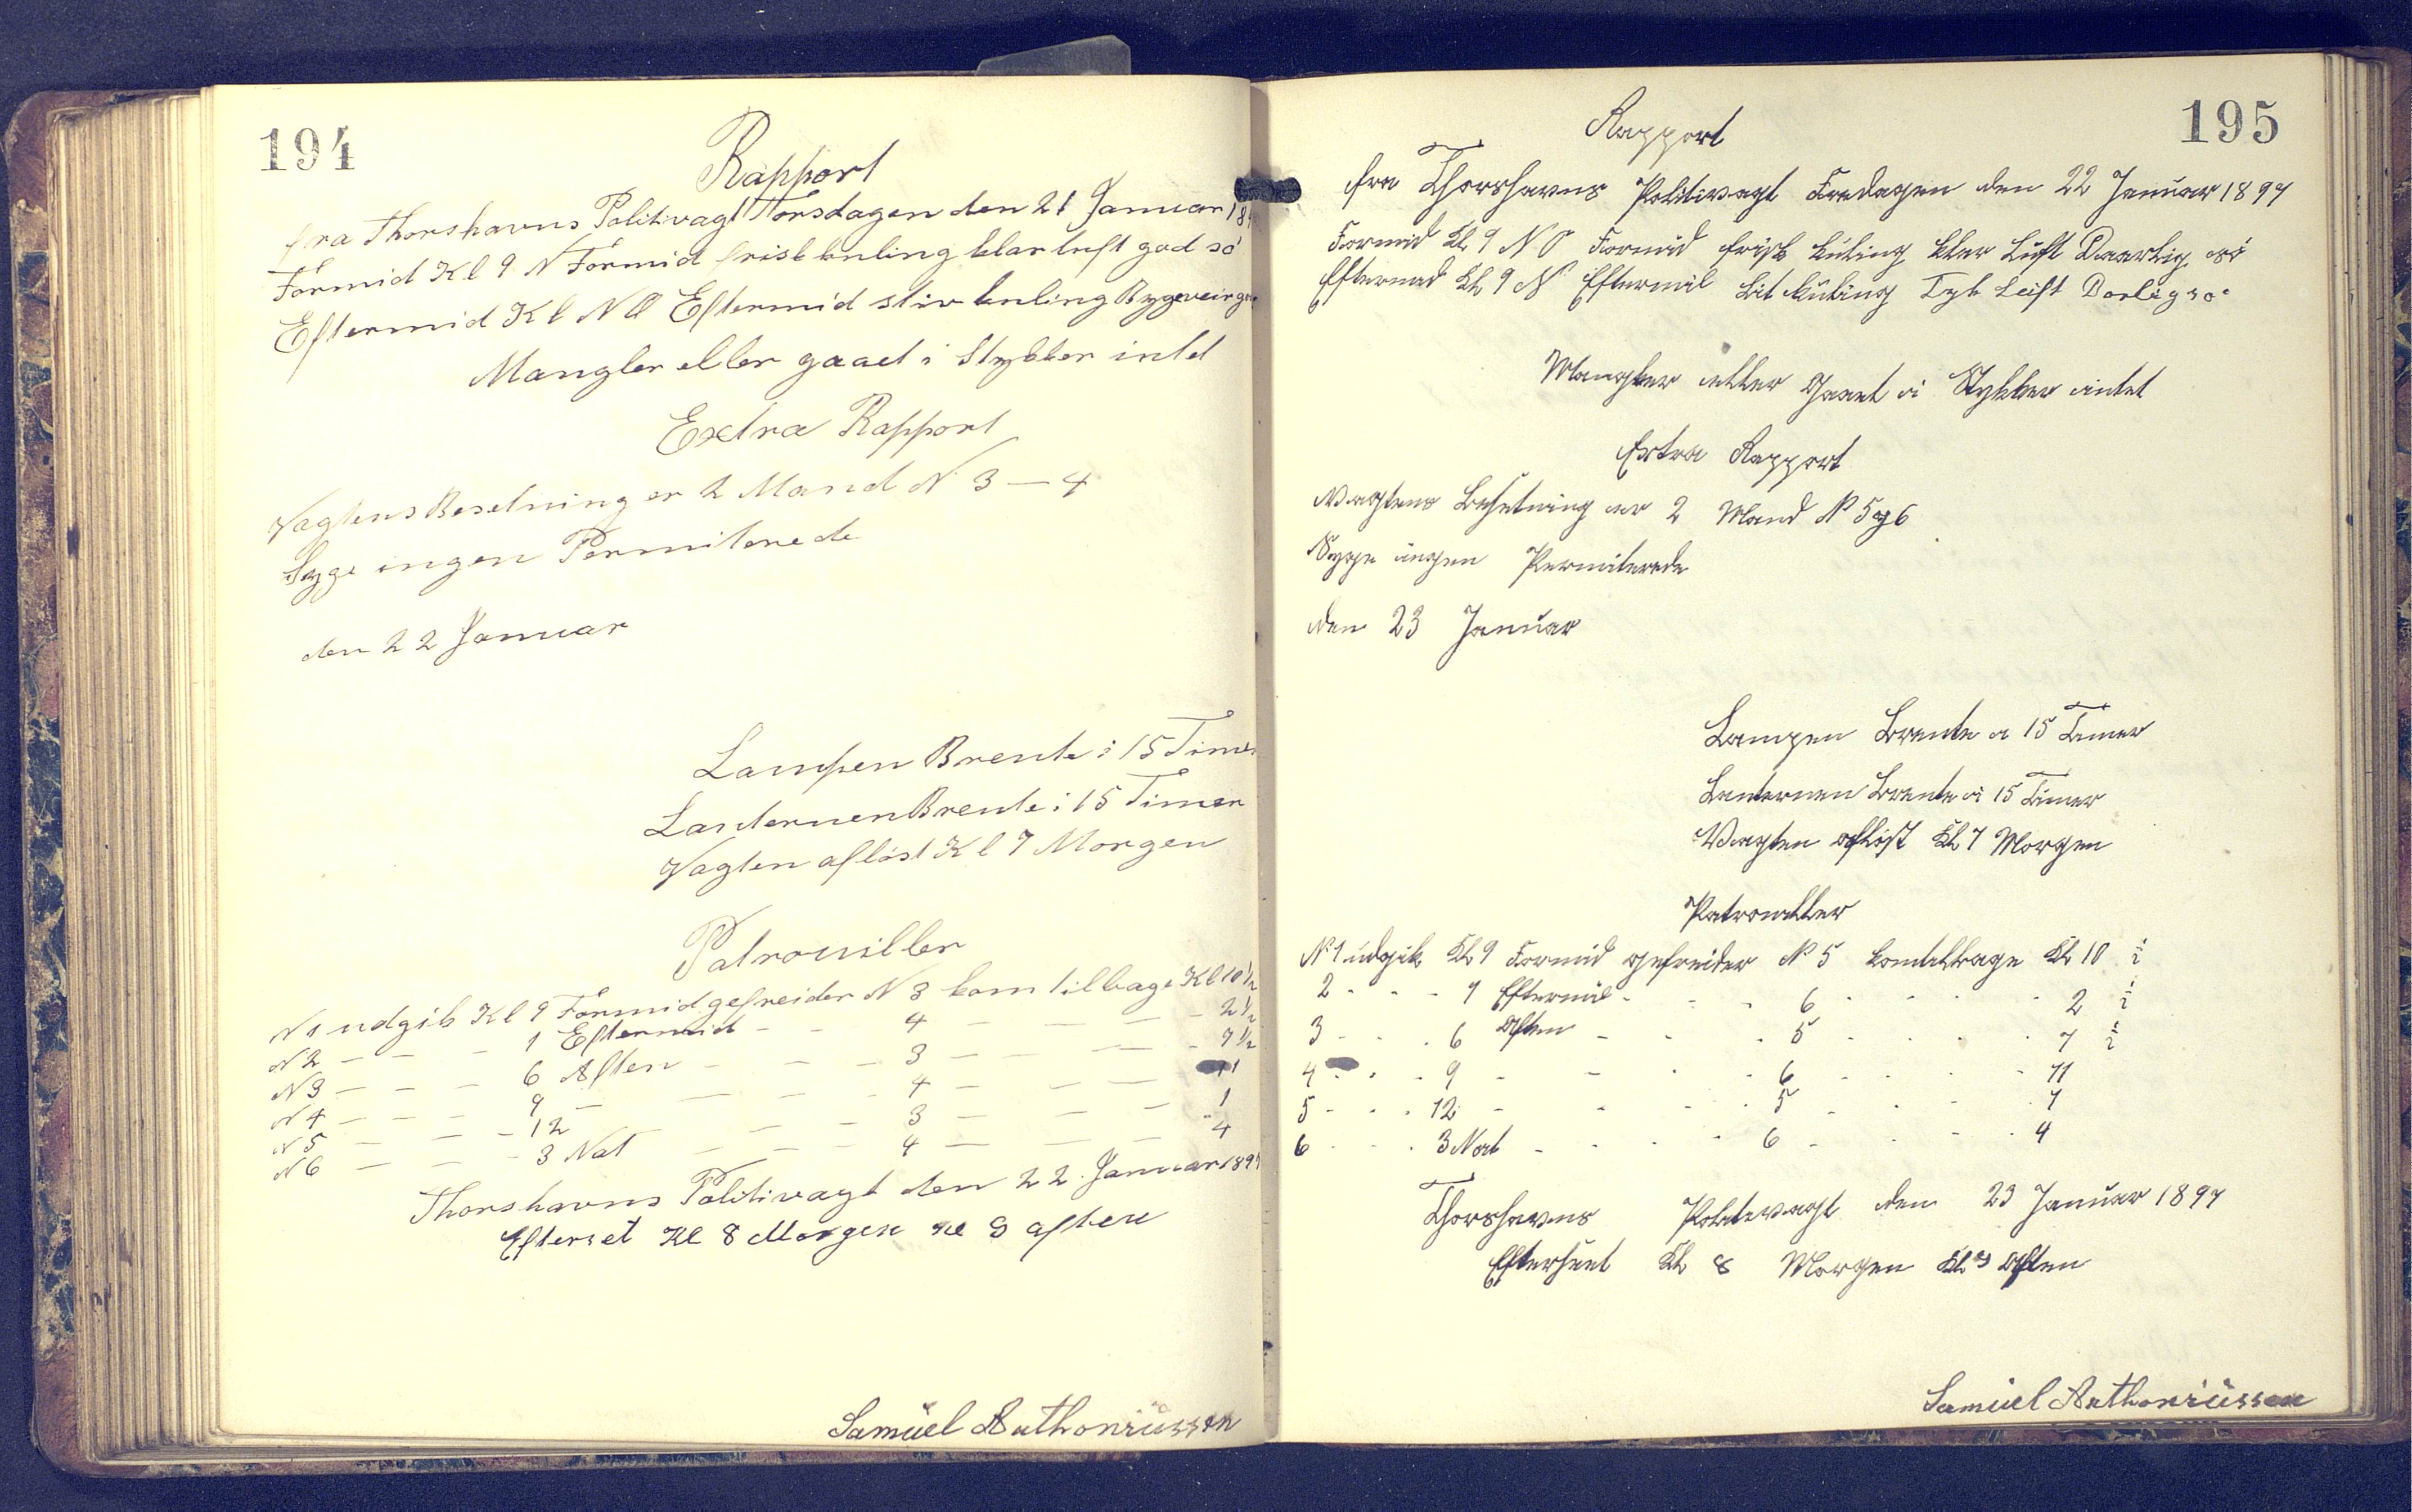 194
Rapport
fra Thorshavns Politivagt Torsdagen den 21 Januar 18
Formid Kl 9 N Formid frisk kuling klar luft god sö
Eftermid Kl N O Eftermid stiv kuling Bygeveir
Mangler eller gaaet i Stykker intet
Extra Rapport
Vagtens Besetning er 2 Mand N 3 — 4
Syge ingen Permiterede
den 22 Januar
Lampen Brente i 15 Timer
Lanternen Brente i 15 Timer
Vagten afløst Kl 7 Morgen
Patrouiller
N 1 udgik Kl 9 Formid gefreider N 3 kom tilbage Kl 10 ½
N 2 — — - 1 Eftermid - - 4 — — — - 2 ½
N 3 — — — 6 Aften - — — 3 — — — - 7 ½
N 4 — — — 9 — — — - 4 — — — 11
N 5 — — - 12 — — — 3 — — — 1
N 6 — — - 3 Nat — — — 4 — — — 4
Thorshavns Politivagt den 22. Januar 1897
Efterset Kl 8 Morgen Kl 9 aften
Samüel Anthoniüssen
195
Rapport
fra Thorshavns Politivagt Fredagen den 22 Januar 1897
Formid Kl 9 N O Formid frisk kuling klar Luft Daarlig sö
Eftermid Kl 9 N Eftermid lit kuling Tyk Luft Darlig sö
Mangler eller Gaaet i Stykker intet
Extra Rapport
Vagtens Besetning er 2 Mand N 5 og 6
Syge ingen Permiterede
den 23 Januar
Lampen Brente i 15 Timer
Lanternen Brente i 15 Timer
Vagten afløst Kl 7 Morgen
Patrouiller
N 1 udgik Kl 9 Formid gefreider N 5 kom tilbage Kl 10 ½
2 - - - 1 Eftermid - - - 6 - - - - 2 ½
3 - - - 6 Aften - - - 5 - - - - 7 ½
4 - - - 9 - - - - 6 - - - - 11
5 - - - 12 - - - - 5 - - - - 1
6 - - - 3 Nat - - - - 6 - - - - 4
Thorshavns Politivagt den 23 Januar 1897
Efterseet Kl 8 Morgen Kl 9 Aften
Samüel Anthoniüssen